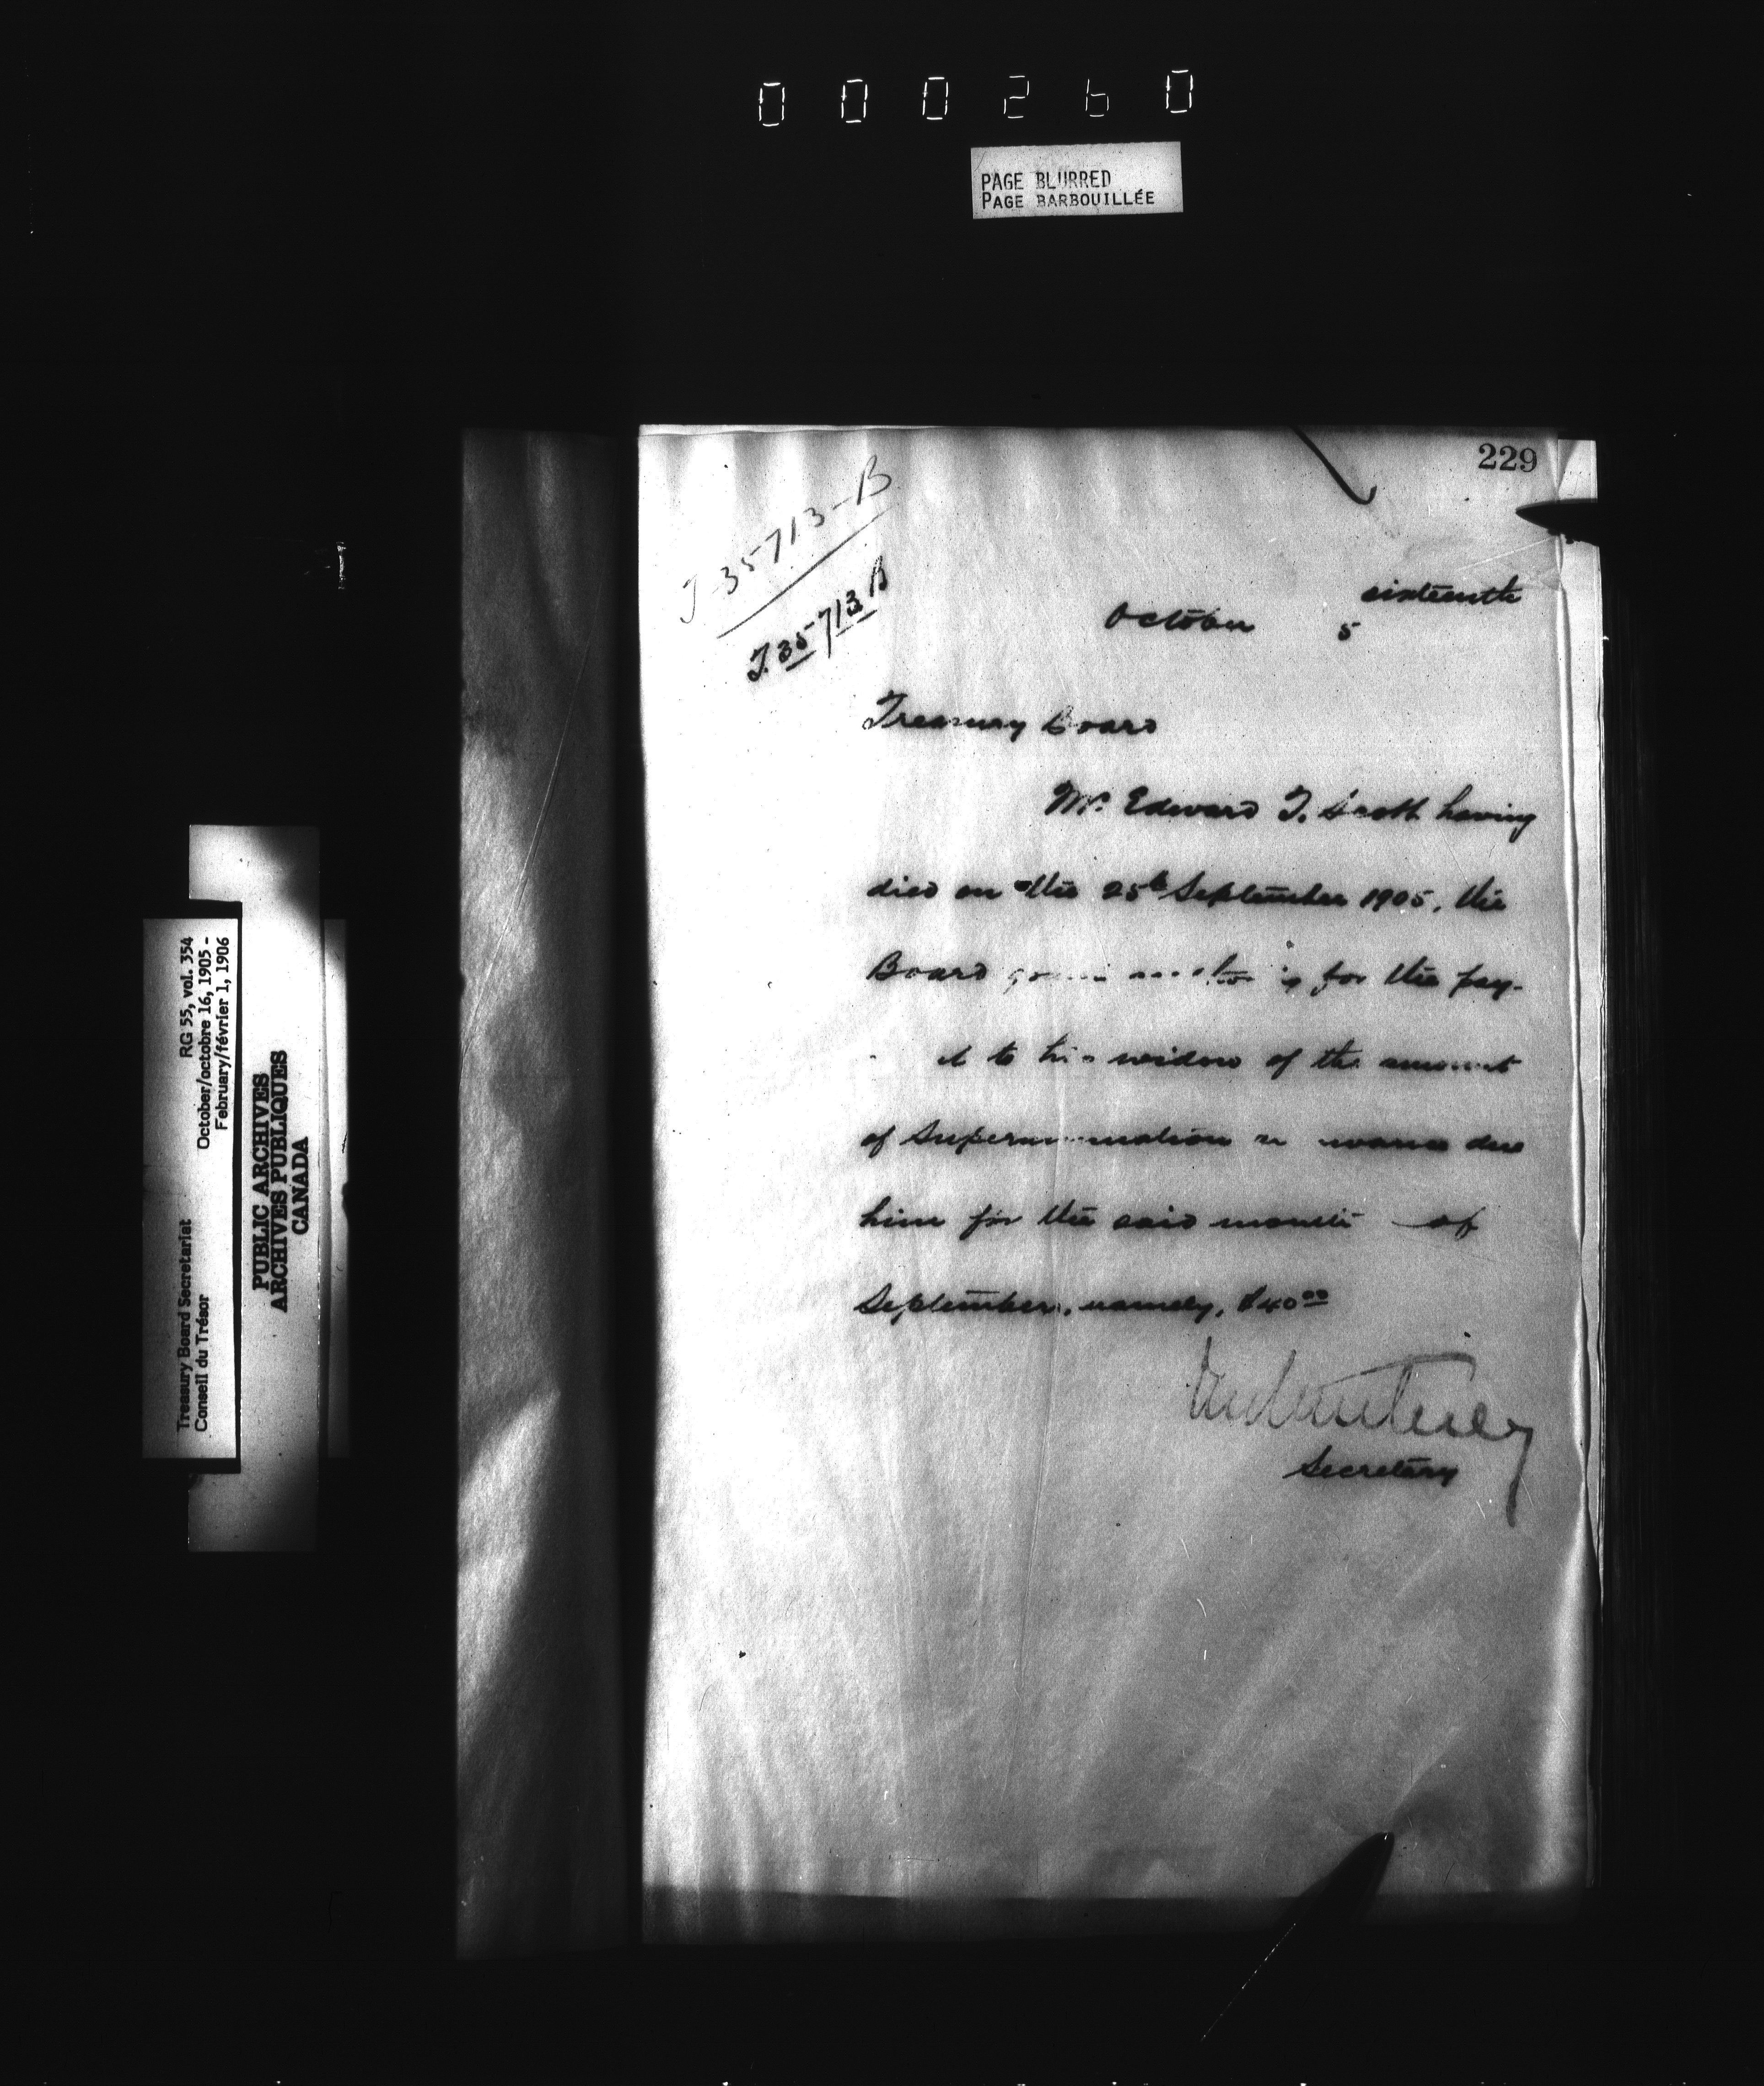 000260
PAGE BLURRED
PAGE BARBOUILLÉE
229
T 35713-B
T.35713 B
sixteenth
October 5
Treasury Board
Mr. Edward T. Scott having
died on the 25th September 1905, the
Board for the pay-
to his widow of the amount
of due
him for the said month of
September, namely, $40.00
Secretary
Treasury Board Secretariat RG 55, vol. 354
Conseil du Trésor October/octobre 16, 1905 -
February/février 1, 1906
PUBLIC ARCHIVES
ARCHIVES PUBLIQUES
CANADA